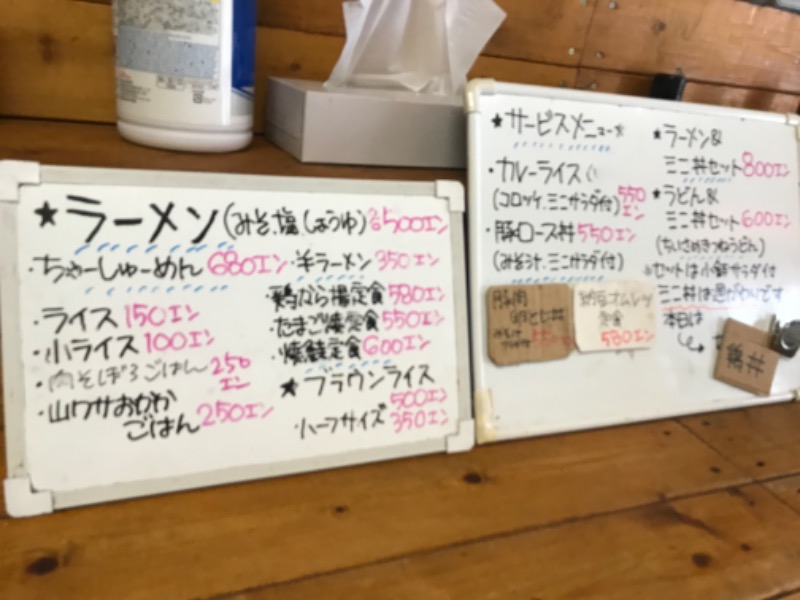 ★ラーメン(みそ、塩、しょうゆ)各500エン
・ちゃーしゅーめん 680エン
・半ラーメン 350エン
・ライス 150エン
・小ライス 100エン
・肉そぼろごはん 250エン
・山ワサおかか
ごはん 250エン
・鶏から揚定食 580エン
・たまご焼定食 550エン
・定食 600エン
★ブラウンライス
500エン
ハーフサイズ 350エン
★サービスメニュー★
・カレーライス
(コロッケ、ミニサラダ付) 550エン
・豚ロース丼 550エン
(みそ汁、ミニサラダ付)
豚肉
定食
530エン
★ラーメン&
ミニ丼セット 800エン
★うどん&
ミニ丼セット 600エン
(ちいさめきつねうどん)
※セットは小鉢サラダ付
ミニ丼は週がわりです
本日は
豚丼